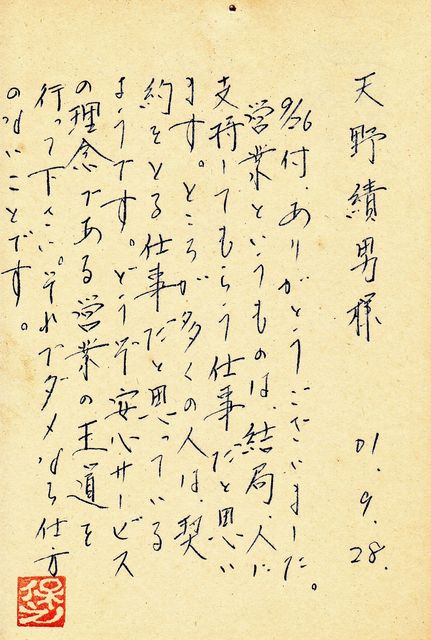 天野績男様
01.9.28.
9/26付、ありがとうございました。
営業というものは、結局、人に
支持してもらう仕事だと思い
ます。ところが多くの人は、契
約をとる仕事だと思っている
ようです。どうぞ安心サービス
の理念である営業の王道を
行って下さい。それでダメなら仕方
のないことです。
保之